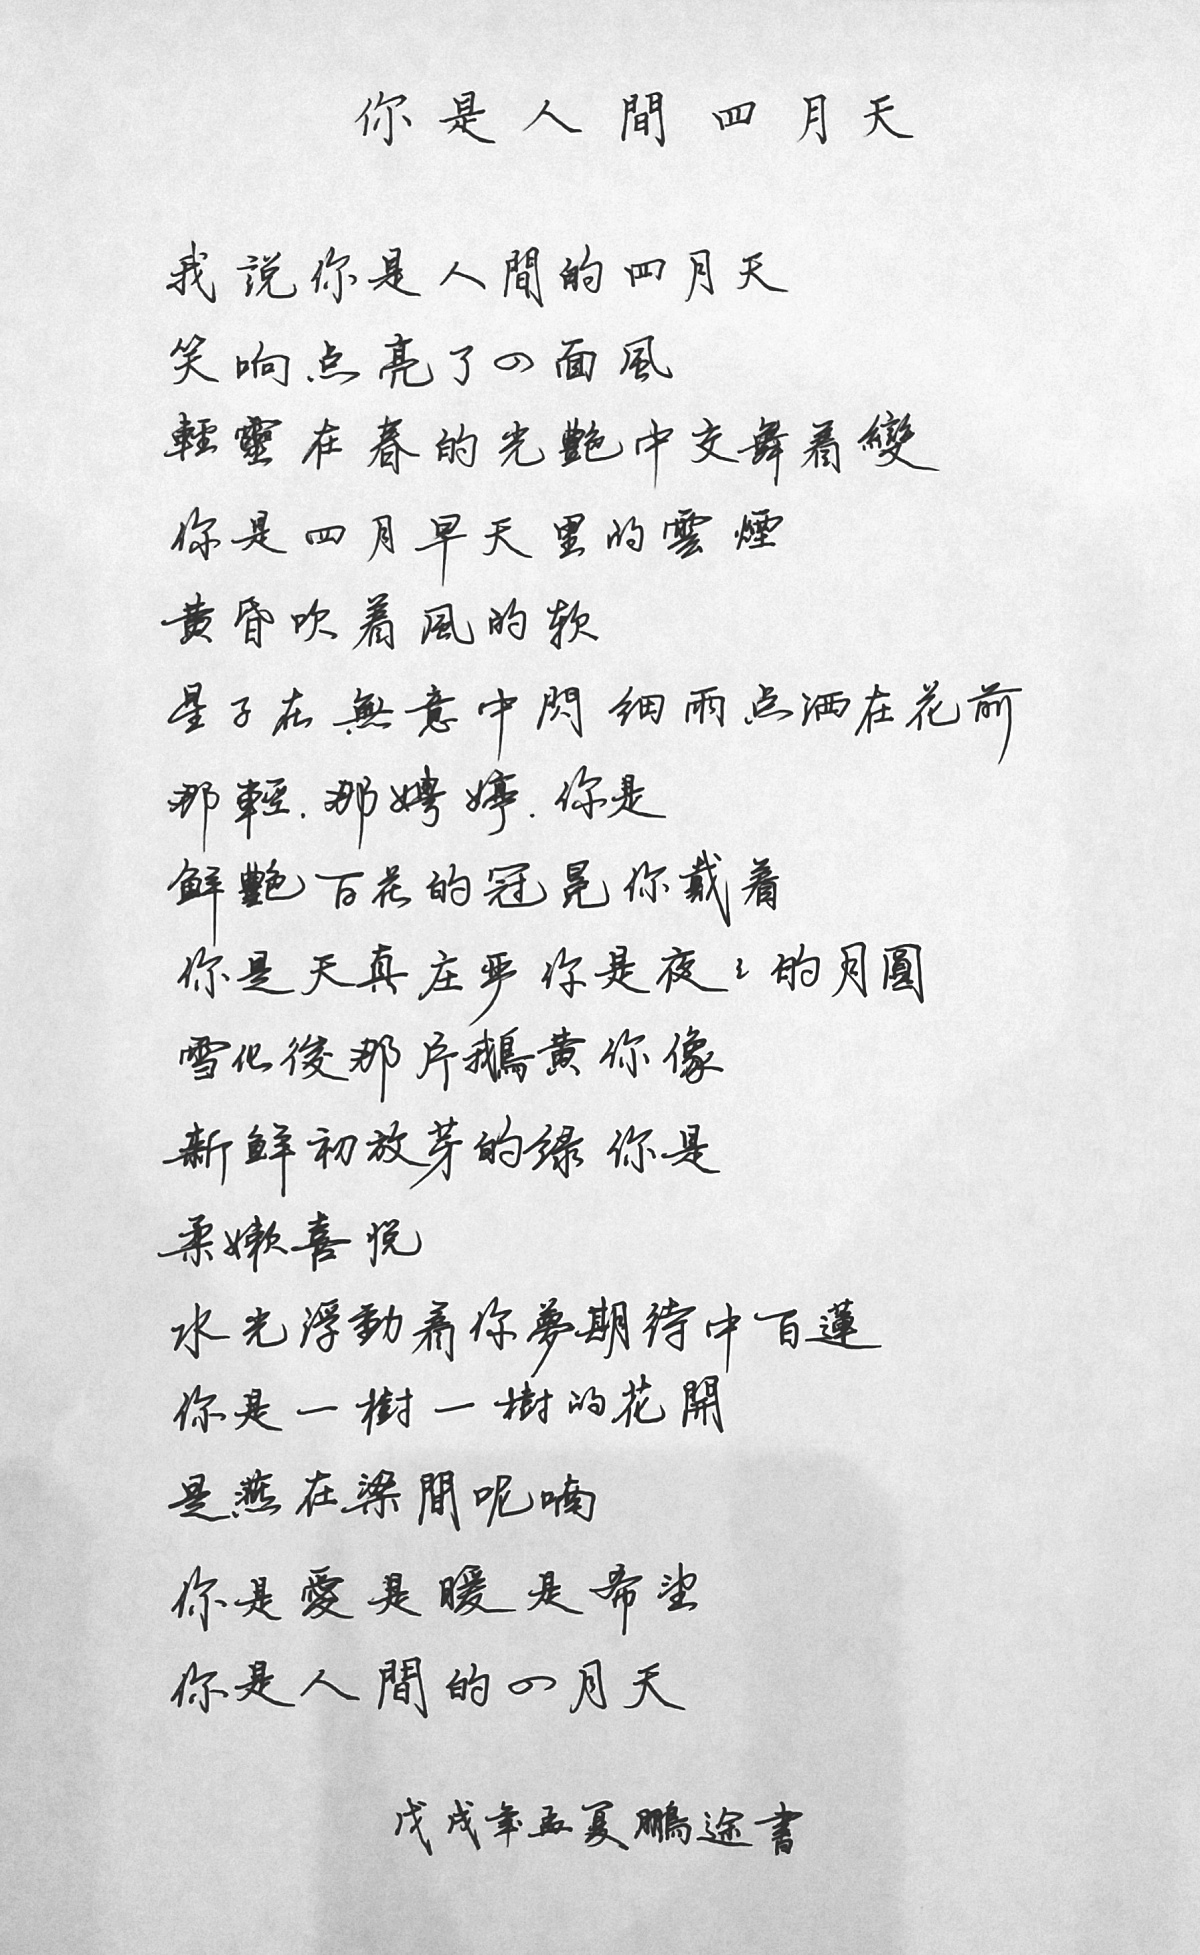 你是人間四月天
我說你是人間的四月天
笑响点亮了四面風
輕靈在春的光艷中交舞着變
你是四月早天里的雲煙
黄昏吹着風的软
星子在無意中閃細雨点洒在花前
那輕.那娉婷.你是
鮮艷百花的冠冕你戴着
你是天真庄严你是夜々的月圓
雪化後那片鵝黄你像
新鮮初放芽的绿你是
柔嫩喜悦
水光浮動着你夢期待中百蓮
你是一樹一樹的花開
是燕在梁間呢喃
你是愛是暖是希望
你是人間的四月天
戊戌年孟夏鵬途書